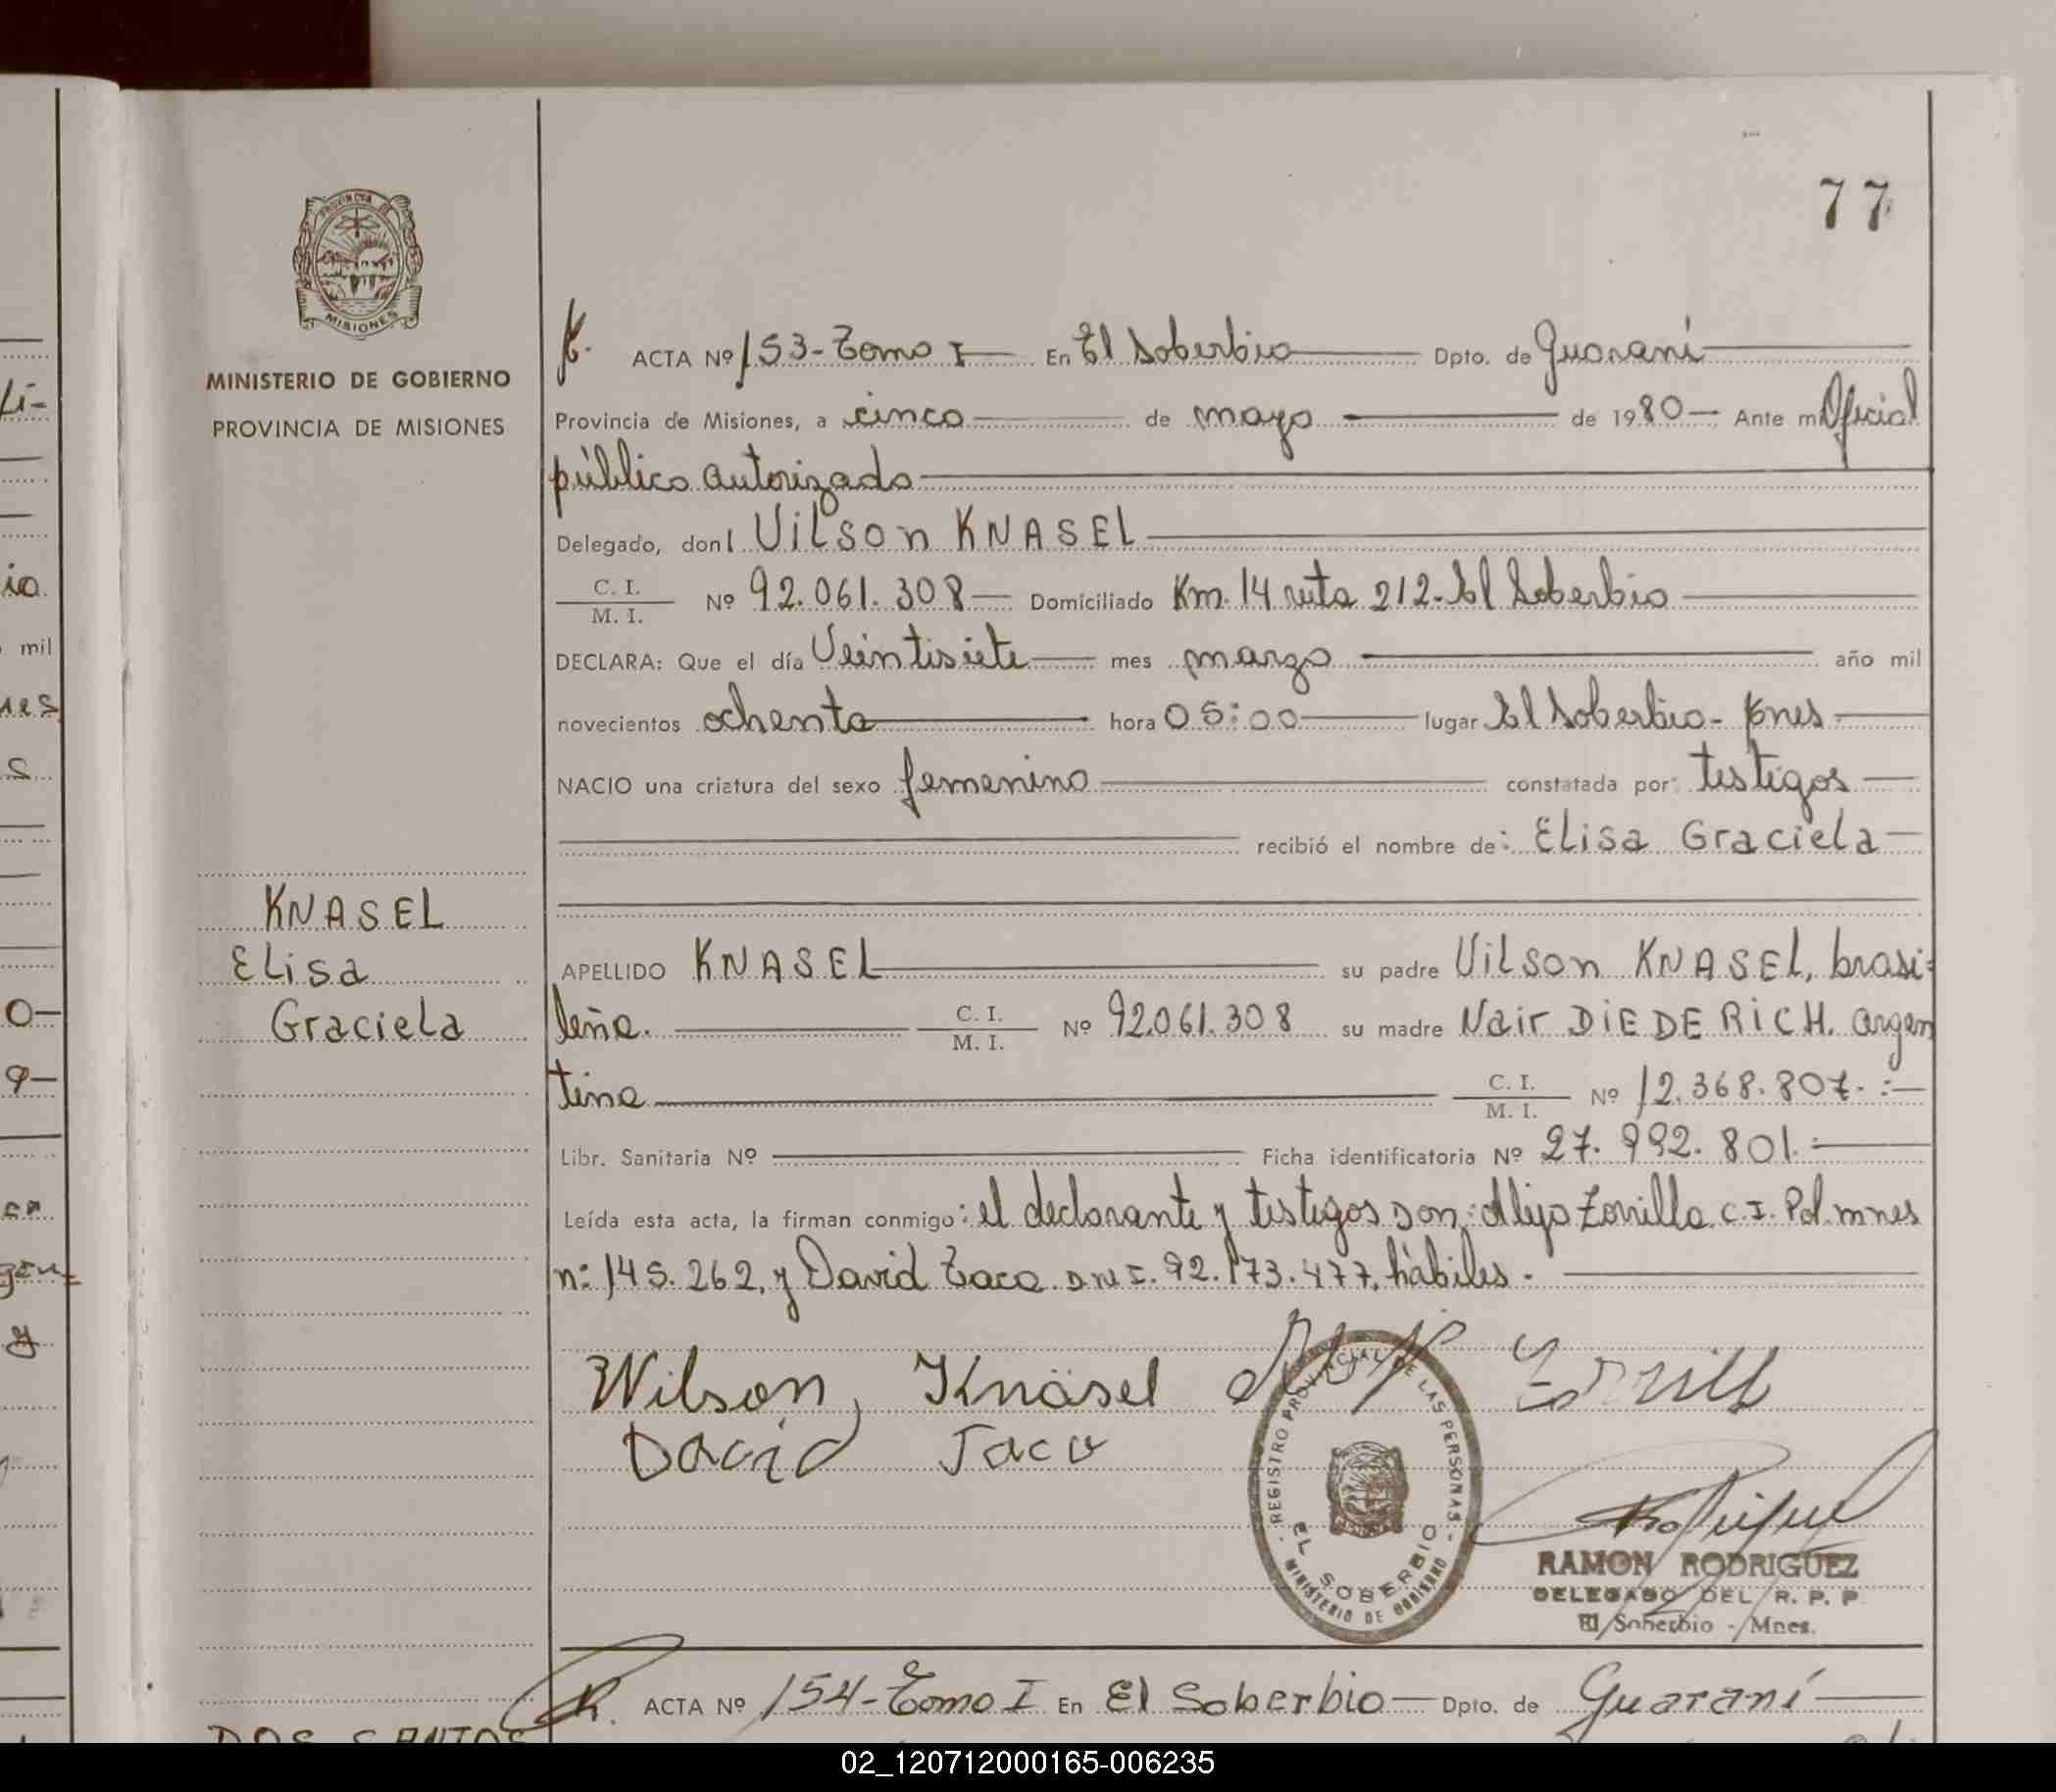 77
PROVINCIA DE
MISIONES
MINISTERIO DE GOBIERNO
PROVINCIA DE MISIONES
KNASEL
Elisa
Graciela
ACTA Nº 153-Tomo I En El Soberbio Dpto. de Guaraní
Provincia de Misiones, a cinco de mayo de 1980 Ante mi Oficial
público autorizado
Delegado, don: Vilson KNASEL
C. I. / M. I. Nº 92.061.308 Domiciliado Km. 14 ruta 212-El Soberbio
DECLARA: Que el día Veintisiete mes marzo año mil
novecientos ochenta hora 05:00 lugar El Soberbio-
NACIO una criatura del sexo femenino constatada por: testigos
recibió el nombre de: Elisa Graciela
APELLIDO KNASEL su padre Vilson KNASEL, brasi=
leña. C. I. / M. I. Nº 92.061.308 su madre Nair DIEDERICH. argen
tina C. I. / M. I. Nº 12.368.807.
Libr. Sanitaria Nº Ficha identificatoria Nº 27.992.801.
Leída esta acta, la firman conmigo: el declarante y testigos son: Alejo Zorrilla C.I. Pol. mnes
n: 145.262, y David Taca DNI. 92.173.477, hábiles.
Wilson Knäsel
David
REGISTRO PROVINCIAL DE LAS PERSONAS
EL SOBERBIO
MINISTERIO DE GOBIERNO
RAMON RODRIGUEZ
DELEGADO DEL R. P. P
El Soberbio - Mnes.
ACTA Nº 154-Tomo I En El Soberbio Dpto. de Guaraní
DOS SANTOS
02_120712000165-006235